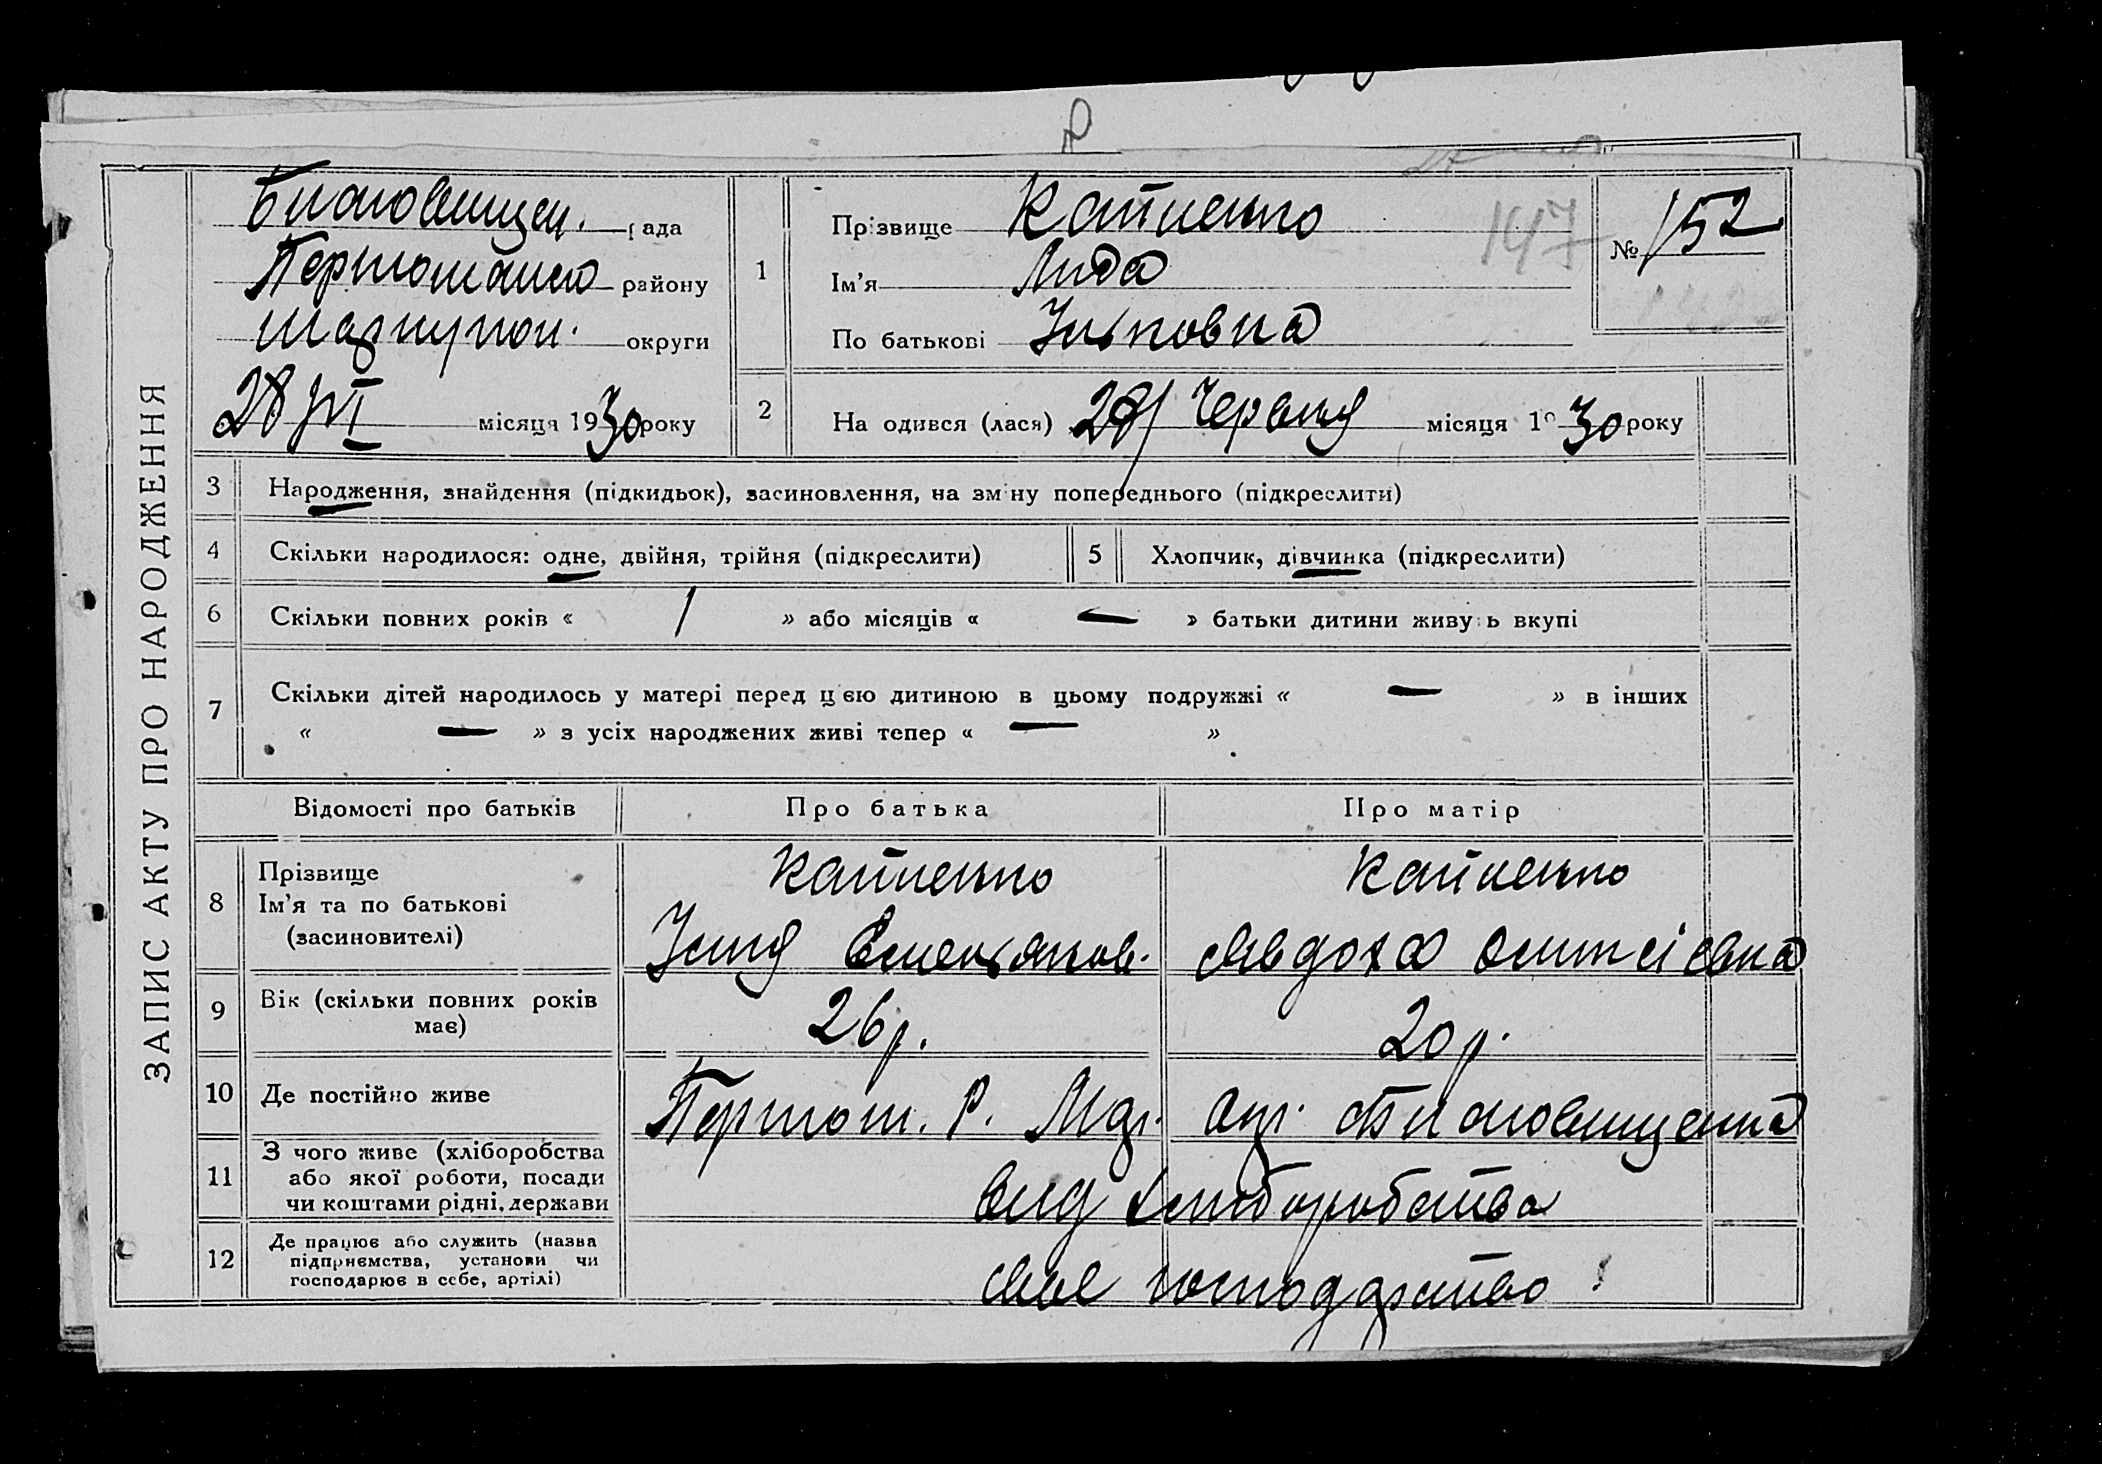 ЗАПИС АКТУ ПРО НАРОДЖЕННЯ
Благовищен. рада
района
округи
28/VI місяця 1930 року
1
Прізвище Капленко
Ім'я Лида
По батькові
147
№ 152
2
На одився (лася) 28/ Червня місяця 19 30 року
3 Народження, знайдення (підкидьок), засиновлення, на зміну попереднього (підкреслити)
4 Скільки народилося: одне, двійня, трійня (підкреслити)
5 Хлопчик, дівчинка (підкреслити)
6 Скільки повних років « 1 » або місяців « — » батьки дитини живуть вкупі
7 Скільки дітей народилось у матері перед цією дитиною в цьому подружжі « — » в інших
« — » з усіх народжених живі тепер « — »
Відомості про батьків Про батька Про матір
8 Прізвище
Ім'я та по батькові
(засиновителі)
Капленко
Емельянов.
Капленко
Авдоха
9 Вік (скільки повних років
має)
26 р.
20 р.
10 Де постійно живе
11 З чого живе (хліборобства
або якої роботи, посади
чи коштами рідні, держави
вид хлиборобства
12 Де працює або служить (назва
підприємства, установи чи
господарює в себе, артілі)
свое господарство